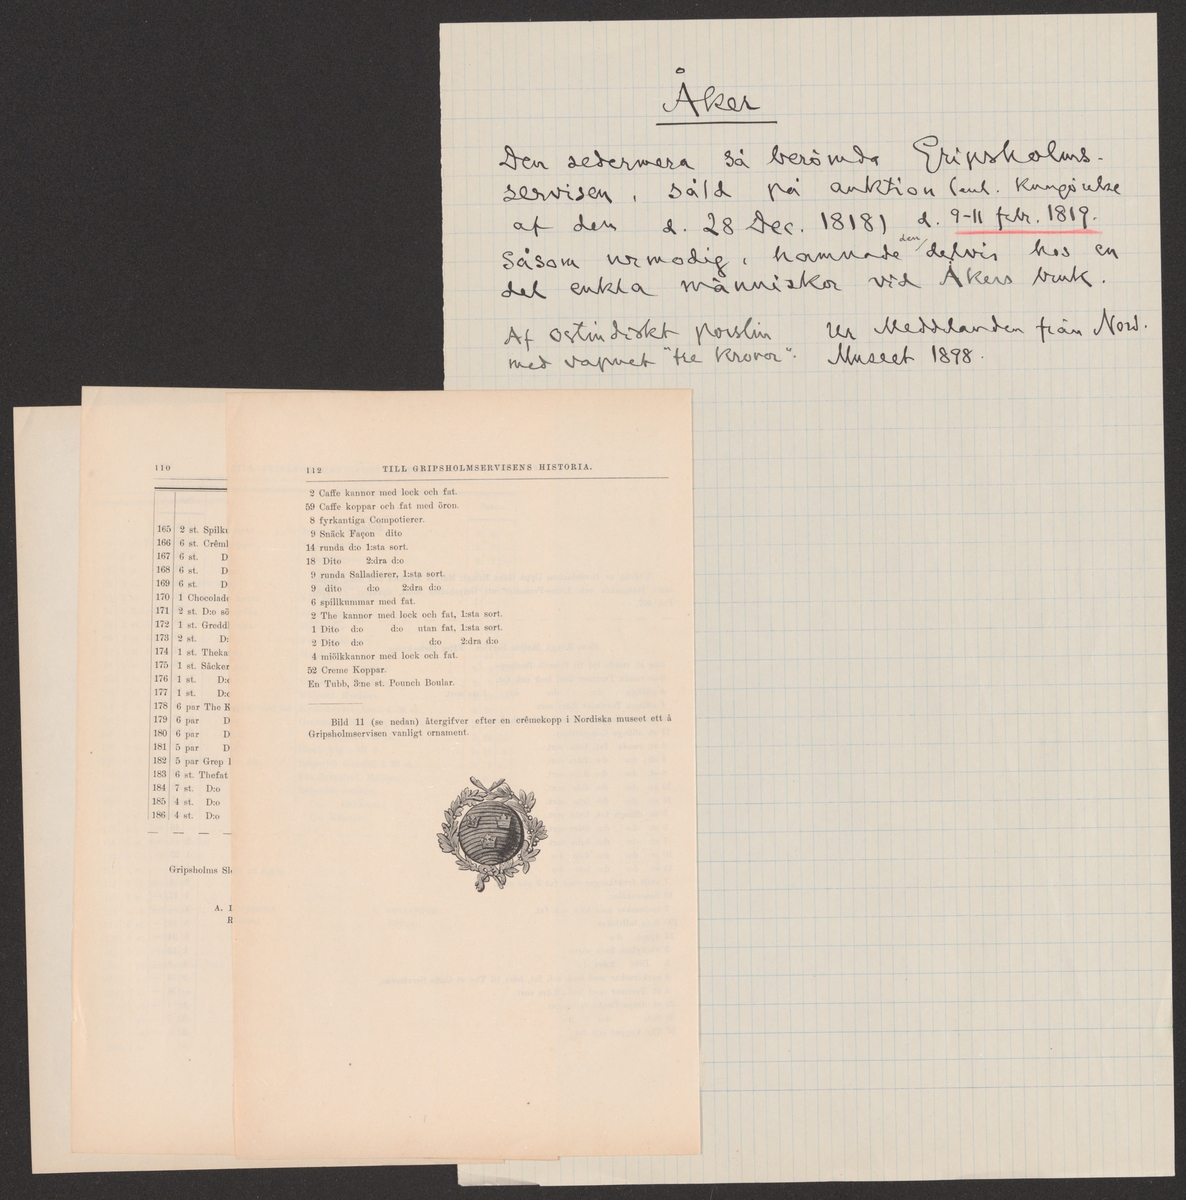 Åker
Den sedermera så berömda Gripsholms-
servisen, såld på auktion (enl. Kungörelse
af den d. 28 Dec. 1818) d. 9-11 febr. 1819.
Såsom urmodig, hamnade den delvis hos en
del enkla människor vid Åkers bruk.
Af ostindiskt porslin
med vapnet "tre Kronor".
Ur Meddelanden från Nord.
Museet 1898.
110
165 2 st. Spilku
166 6 st. Crêml
167 6 st. D
168 6 st. D
169 6 st. D
170 1 Chocolade
171 2 st. D:o sö
172 1 st. Greddl
173 2 st. D:
174 1 st. Theka
175 1 st. Såcker
176 1 st. D:o
177 1 st. D:o
178 6 par The K
179 6 par D
180 6 par D
181 5 par D
182 5 par Grep
183 6 st. Thefat
184 7 st. D:o
185 4 st. D:o
186 4 st. D:o
Gripsholms Slo
A.
R
112 TILL GRIPSHOLMSERVISENS HISTORIA.
2 Caffe kannor med lock och fat.
59 Caffe koppar och fat med öron.
8 fyrkantiga Compotierer.
9 Snäck Façon dito
14 runda d:o 1:sta sort.
18 Dito 2:dra d:o
9 runda Salladierer, 1:sta sort.
9 dito d:o 2:dra d:o
6 spillkummar med fat.
2 The kannor med lock och fat, 1:sta sort.
1 Dito d:o d:o utan fat, 1:sta sort.
2 Dito d:o d:o 2:dra d:o
4 miölkkannor med lock och fat.
52 Creme Koppar.
En Tubb, 3:ne st. Pounch Boular.
Bild 11 (se nedan) återgifver efter en crêmekopp i Nordiska museet ett å
Gripsholmservisen vanligt ornament.